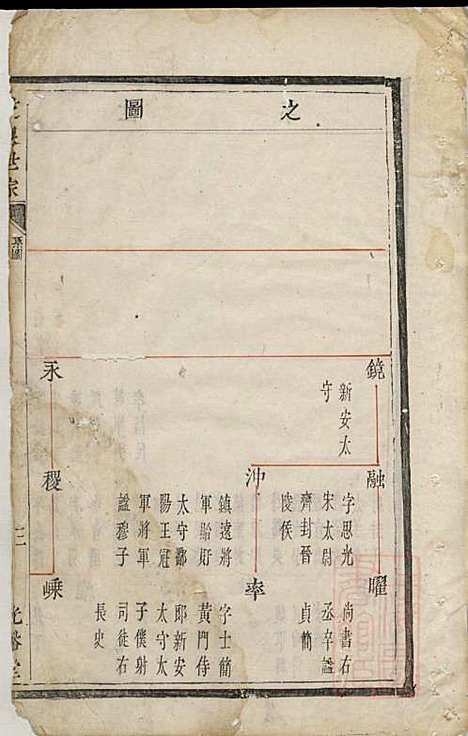 之圖
鏡
新安太
守
融
字思光
宋太尉
齊封晉
陵侯
曜
尚書右
丞卒謚
貞簡
沖
鎮遠將
軍盱眙
太守鄱
陽王冠
軍將軍
謚穆子
率
字士簡
黃門侍
郎新安
太守太
子僕射
司徒右
長史
永
稷
嵊
世家
系圖
三
光裕堂